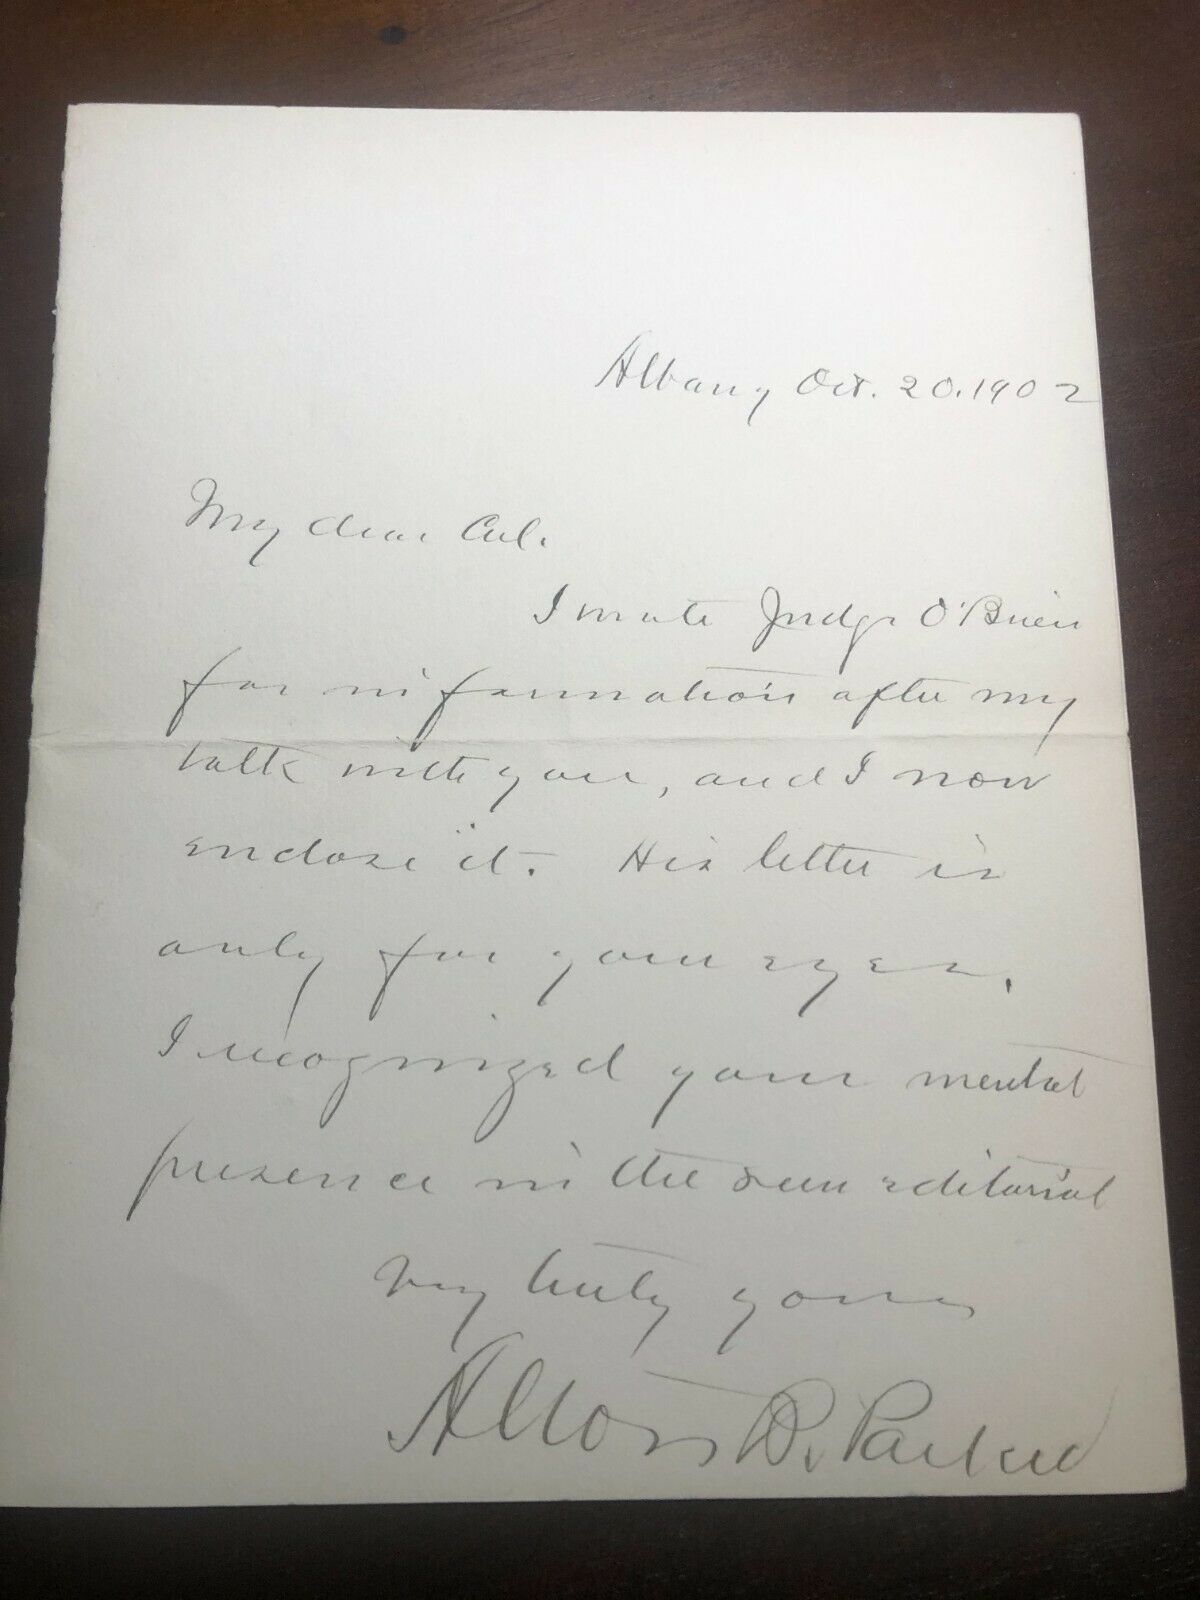 Albany Oct. 20. 1902
My dear Col.
I wrote Judge O'Brien
for information after my
talk with you, and I now
enclose it. His letter is
only for your eyes.
I recognized your mental
presence in the Sun editorial
Very truly yours
Alton B. Parker